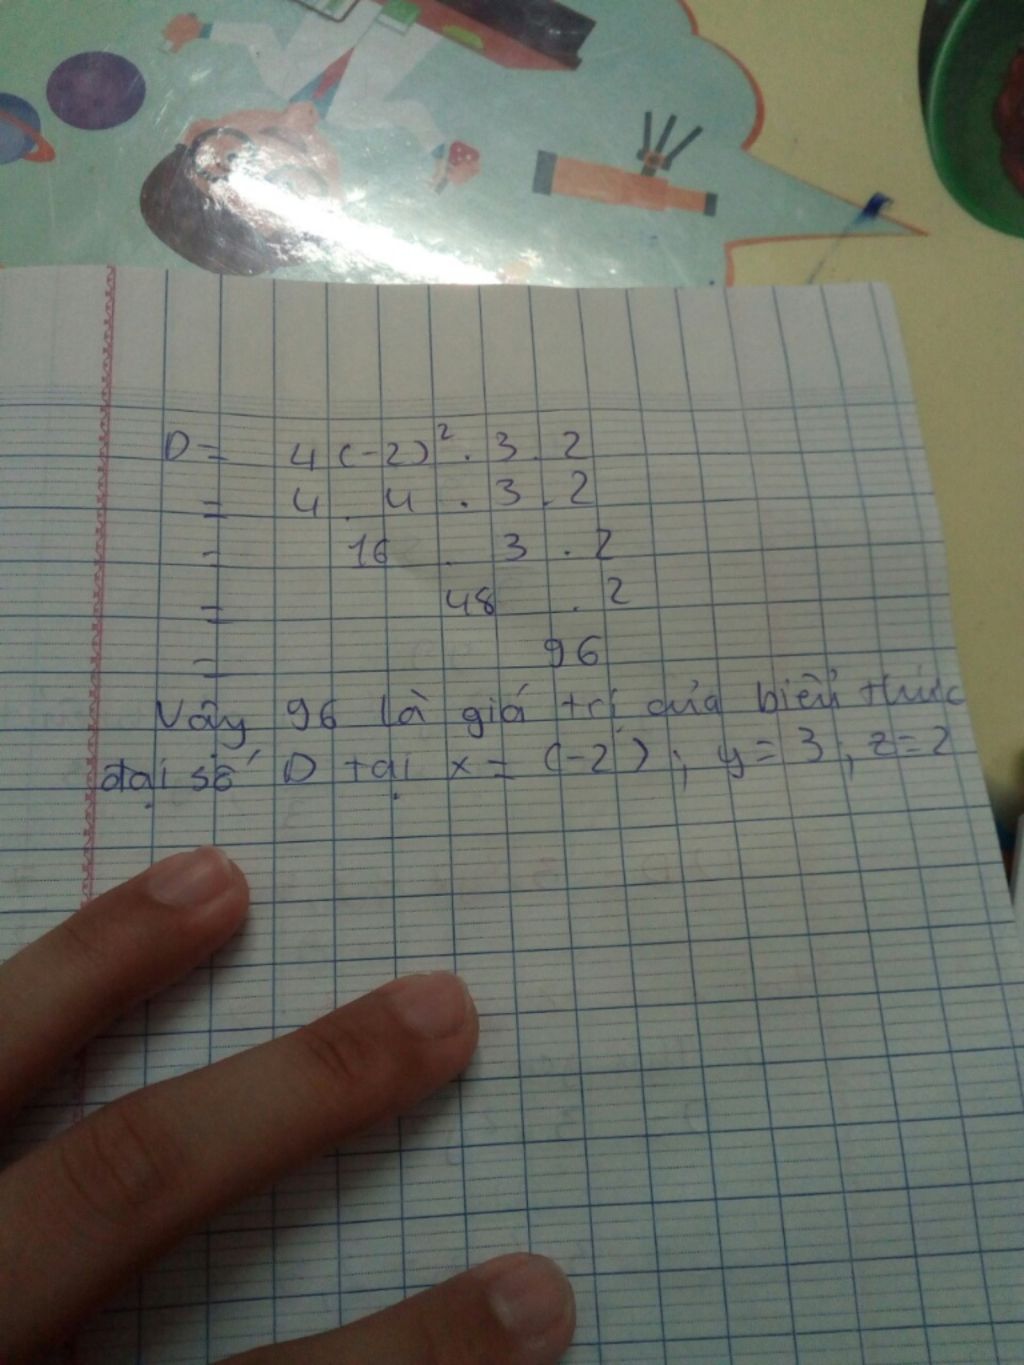 D = 4 (-2)² . 3 . 2
= 4 . 4 . 3 . 2
= 16 . 3 . 2
= 48 . 2
= 96
Vậy 96 là giá trị của biểu thức
đại số D tại x = (-2) ; y = 3 ; z = 2